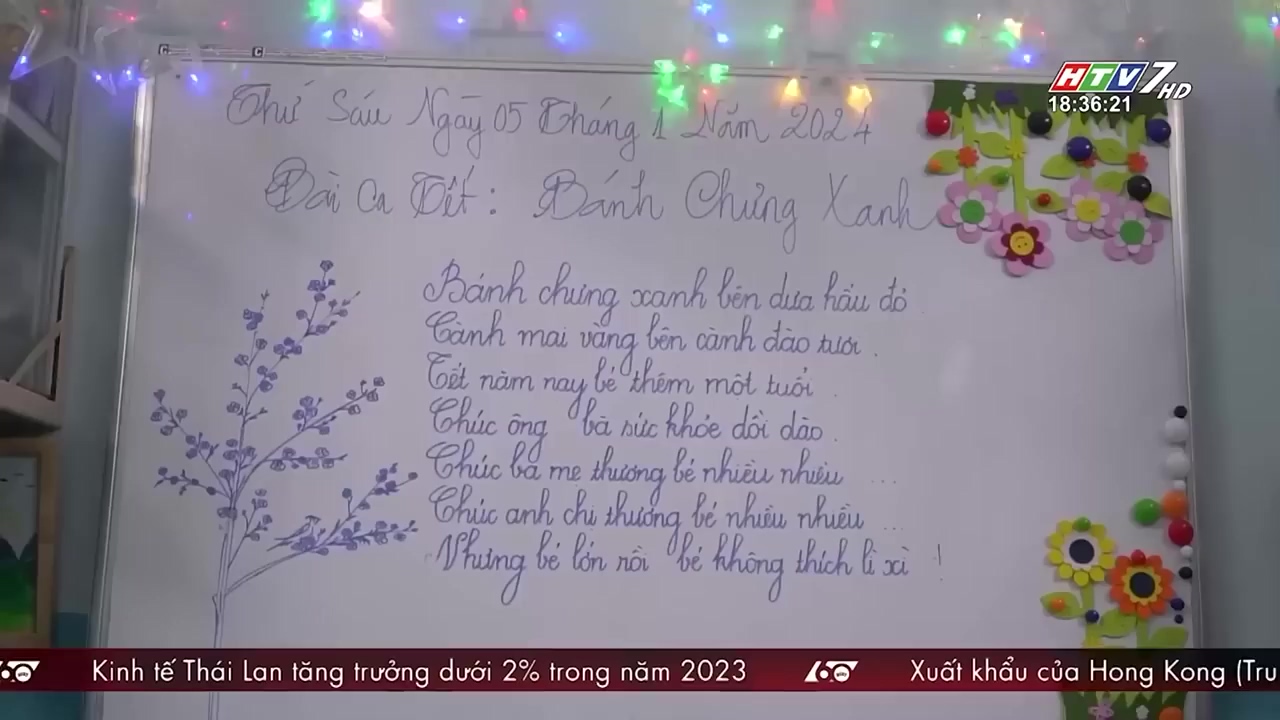 HTV7 HD
18:36:21
Thứ Sáu Ngày 05 Tháng 1 Năm 2024
Bài Ca Tết: Bánh Chưng Xanh
Bánh chưng xanh bên dưa hấu đỏ
Cành mai vàng bên cành đào tươi.
Tết năm nay bé thêm một tuổi.
Chúc ông bà sức khỏe dồi dào.
Chúc ba mẹ thương bé nhiều nhiều ...
Chúc anh chị thương bé nhiều nhiều ...
Nhưng bé lớn rồi bé không thích lì xì !
60 giây Kinh tế Thái Lan tăng trưởng dưới 2% trong năm 2023 60 giây Xuất khẩu của Hong Kong (Tru